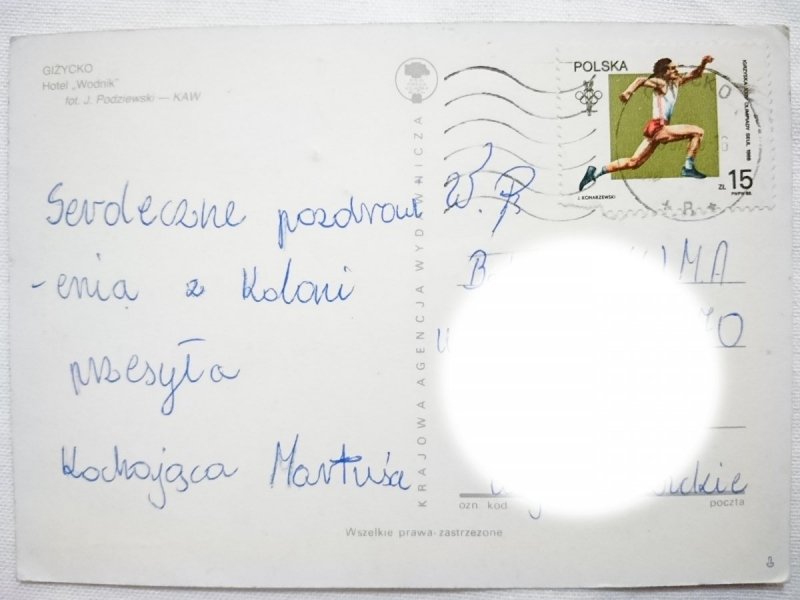 GIŻYCKO
Hotel „Wodnik"
fot. J. Podziewski — KAW
Serdeczne pozdrowi
-enia z Koloni
przesyła
Kochająca Martusia
KRAJOWA AGENCJA WYDAWNICZA
POLSKA
IGRZYSKA XXIV OLIMPIADY SEUL 1988
ZŁ 15
PWPW 88
J. KONARZEWSKI
W.P.
ozn. kod
poczta
Wszelkie prawa zastrzeżone